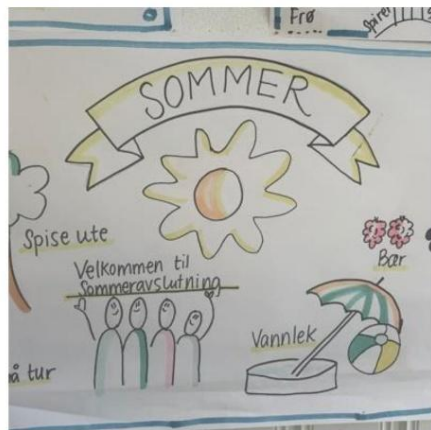 Frø
Spirer
SOMMER
Spise ute
Velkommen til
Sommeravslutning
Bær
Vannlek
på tur